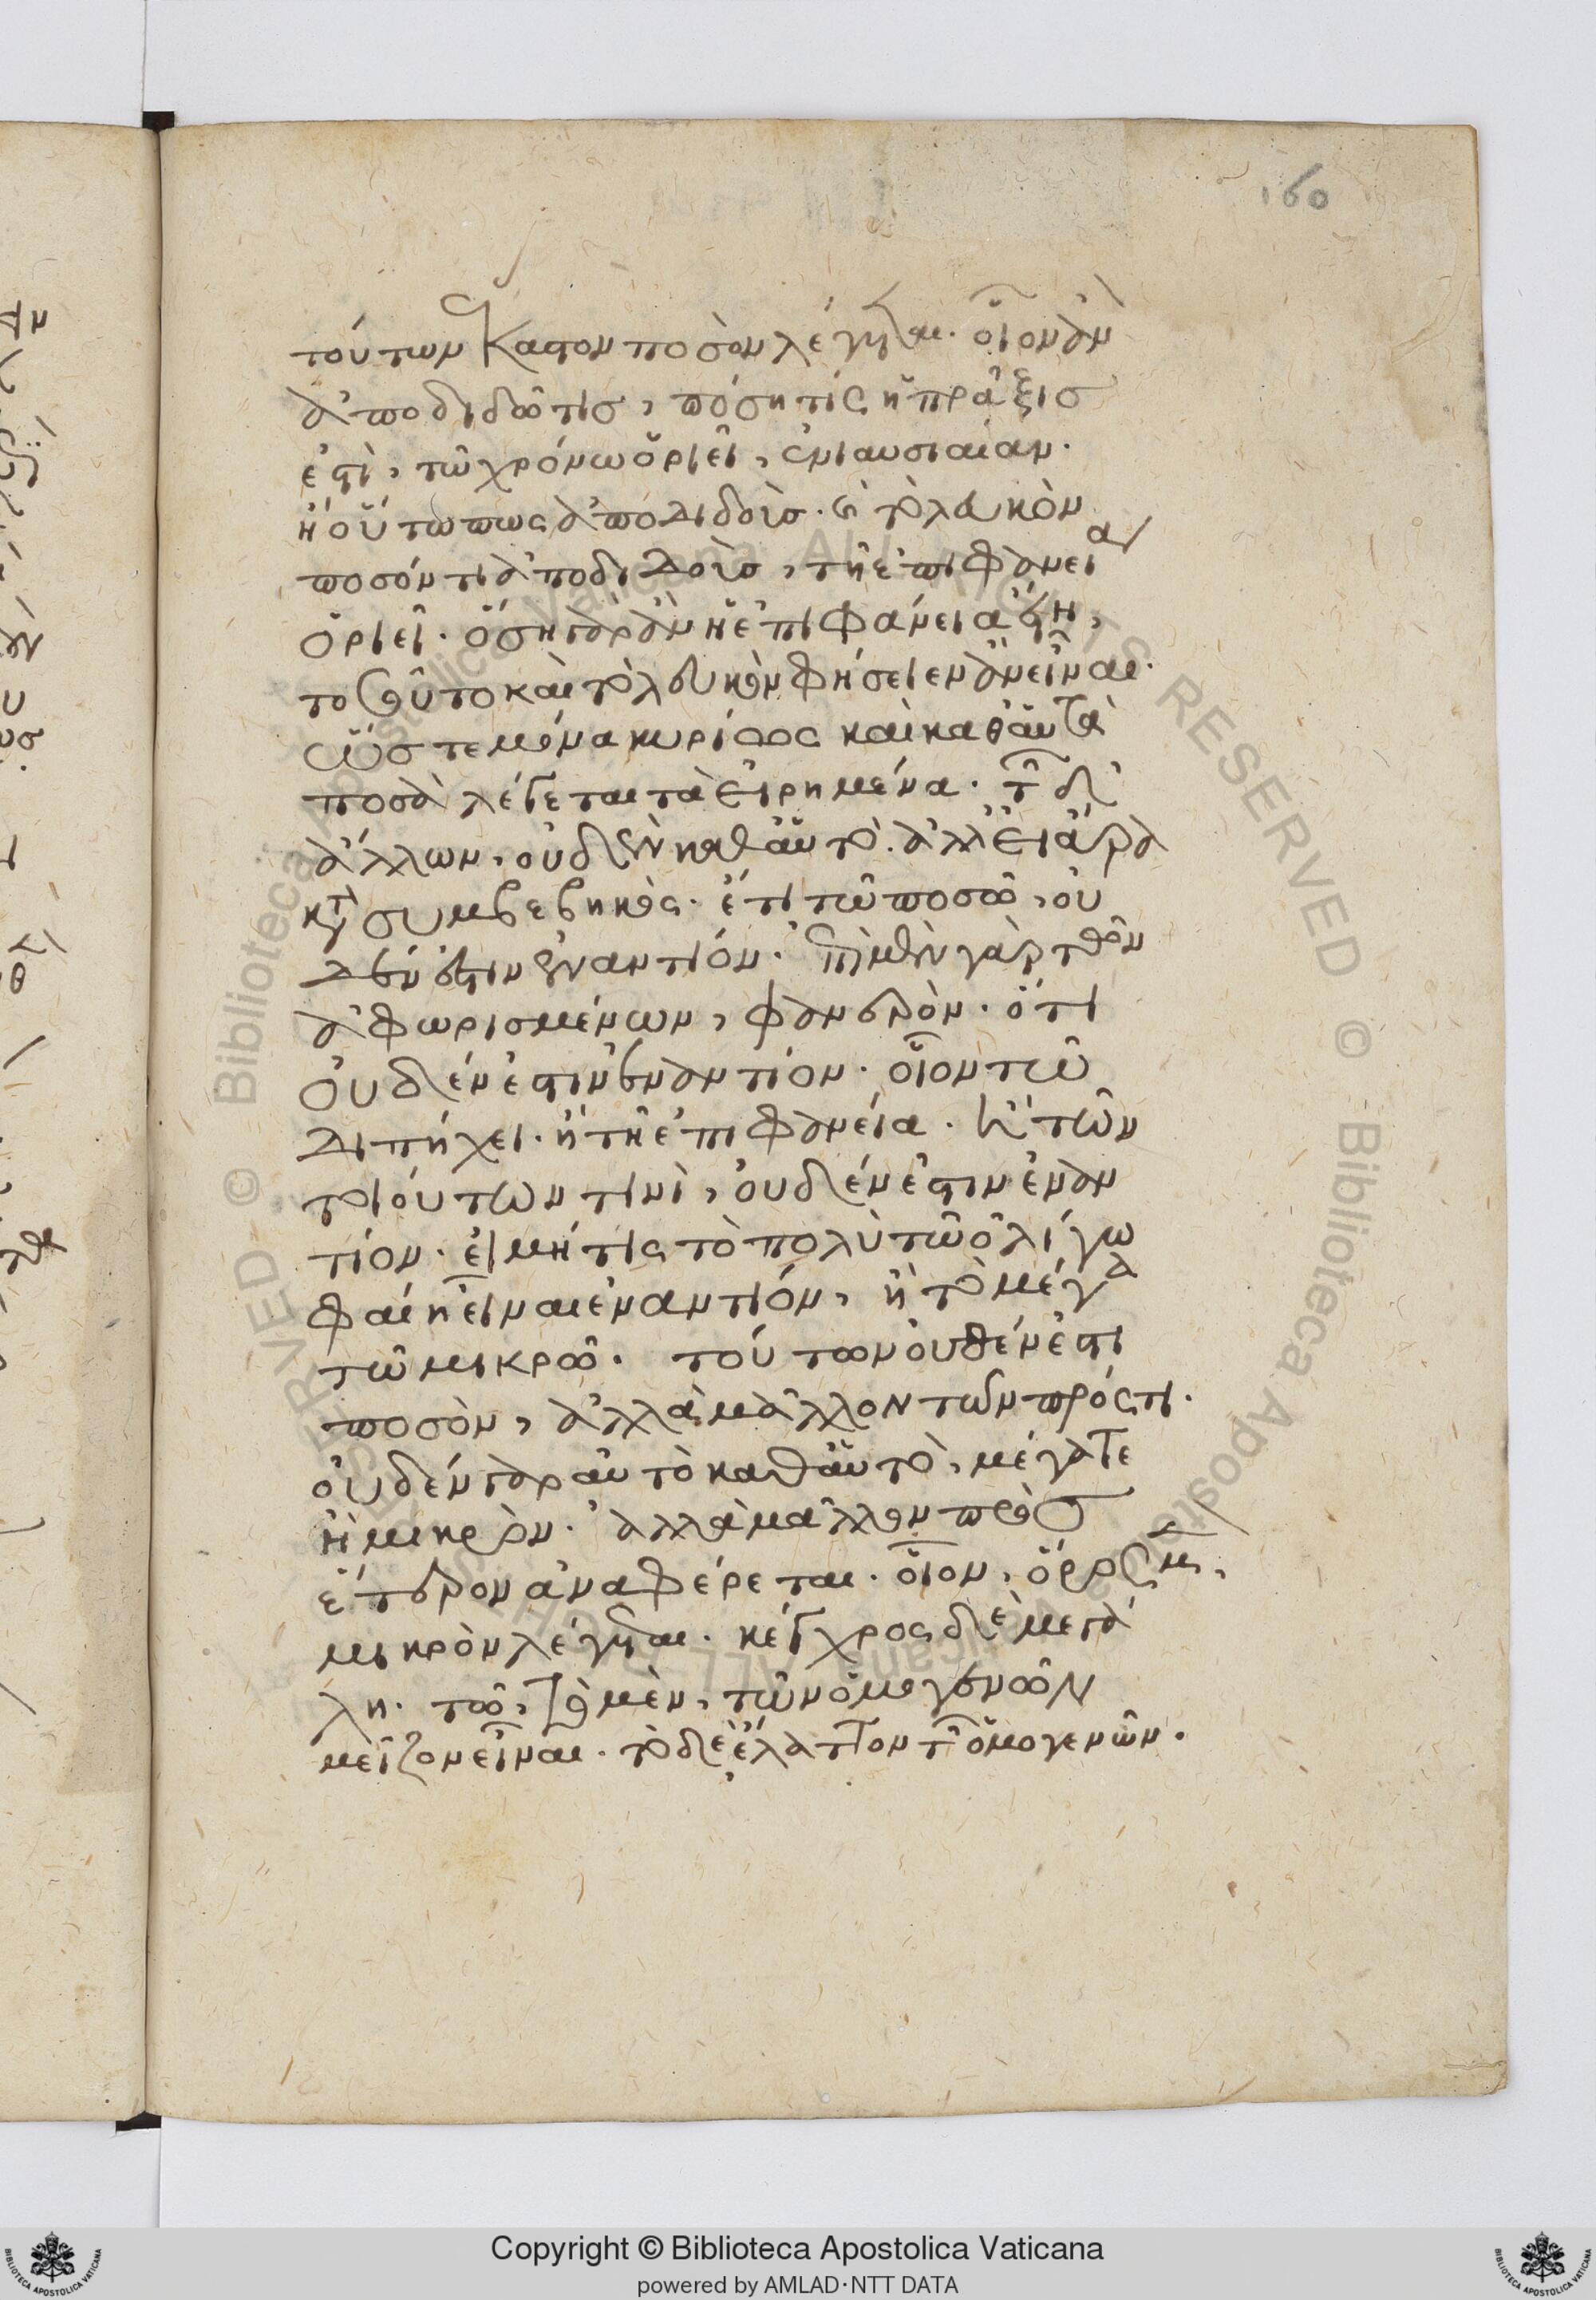 160
τούτων ἕκαστον ποσὸν λέγεται. οἷον ἂν
ἀποδιδῶ τις, πόση τίς ἡ πρᾶξισ
ἐστὶ, τῶ χρόνω ὁριεῖ, ἐνιαυσιαίαν.
ἢ οὕτω πως ἀποδιδοὶσ. καὶ τὸ λευκὸν
ποσόν τι ἀποδιδοὶσ, τῆ ἐπιφανεία
ὁριεῖ. ὅση γὰρ ἂν ἡ ἐπιφάνεια ἔστη,
τοσοῦτο καὶ τὸ λευκὸν φήσειεν ἂν εἶναι.
ὥστε μόνα κυρίως καὶ καθ' αὑτὰ
ποσὰ λέγεται τὰ εἰρημένα. τῶν δ'
ἄλλων, οὐδὲν καθ' αὑτό. ἀλλ' εἰ ἄρα
κατὰ συμβεβηκός. ἔτι τῶ ποσῶ, οὐ
δέν ἐστιν ἐναντίον. ἐπὶ μὲν γὰρ τῶν
ἀφωρισμένων, φανερὸν. ὅτι
οὐδέν ἐστιν ἐναντίον. οἷον τῶ
διπήχει. ἢ τῆ ἐπιφανεία. ἢ τῶν
τοιούτων τινὶ, οὐδέν ἐστιν ἐναν
τίον. εἰ μή τις τὸ πολὺ τῶ ὀλίγω
φαίη εἶναι ἐναντίον, ἢ τὸ μέγα
τῶ μικρῶ. τούτων οὐθέν ἐστι
ποσὸν, ἀλλὰ μᾶλλον τῶν πρός τι.
οὐδὲν γὰρ αὐτὸ καθ' αὑτὸ, μέγα τε
ἢ μικρὸν. ἀλλὰ μᾶλλον πρὸσ
ἕτερον ἀναφέρεται. οἷον, ὄρος μὲν,
μικρὸν λέγεται. κέγχρος δὲ μεγά
λη. τῶ, τὸ μὲν, τῶν ὁμογενῶν
μεῖζον εἶναι. τὸ δὲ ἔλαττον τῶν ὁμογενῶν.
Copyright © Biblioteca Apostolica Vaticana
powered by AMLAD·NTT DATA